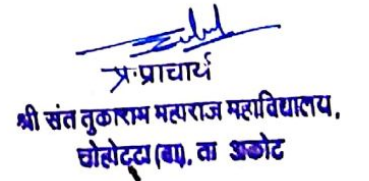 प्र.प्राचार्य
श्री संत तुकाराम महाराज महाविद्यालय,
चोहोट्टा (बा), ता अकोट